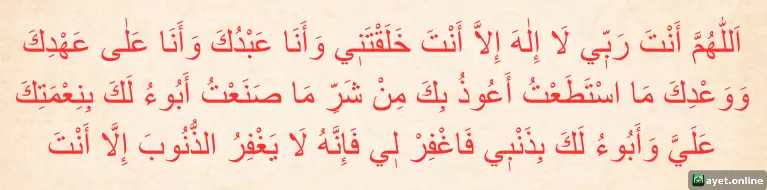 اَللّٰهُمَّ أَنْتَ رَبّ۪ي لَا إِلٰهَ إِلاَّ أَنْتَ خَلَقْتَن۪ي وَأَنَا عَبْدُكَ وَأَنَا عَلٰى عَهْدِكَ
وَوَعْدِكَ مَا اسْتَطَعْتُ أَعُوذُ بِكَ مِنْ شَرِّ مَا صَنَعْتُ أَبُوءُ لَكَ بِنِعْمَتِكَ
عَلَيَّ وَأَبُوءُ لَكَ بِذَنْب۪ي فَاغْفِرْ ل۪ي فَإِنَّهُ لَا يَغْفِرُ الذُّنُوبَ إِلَّا أَنْتَ
ayet.online